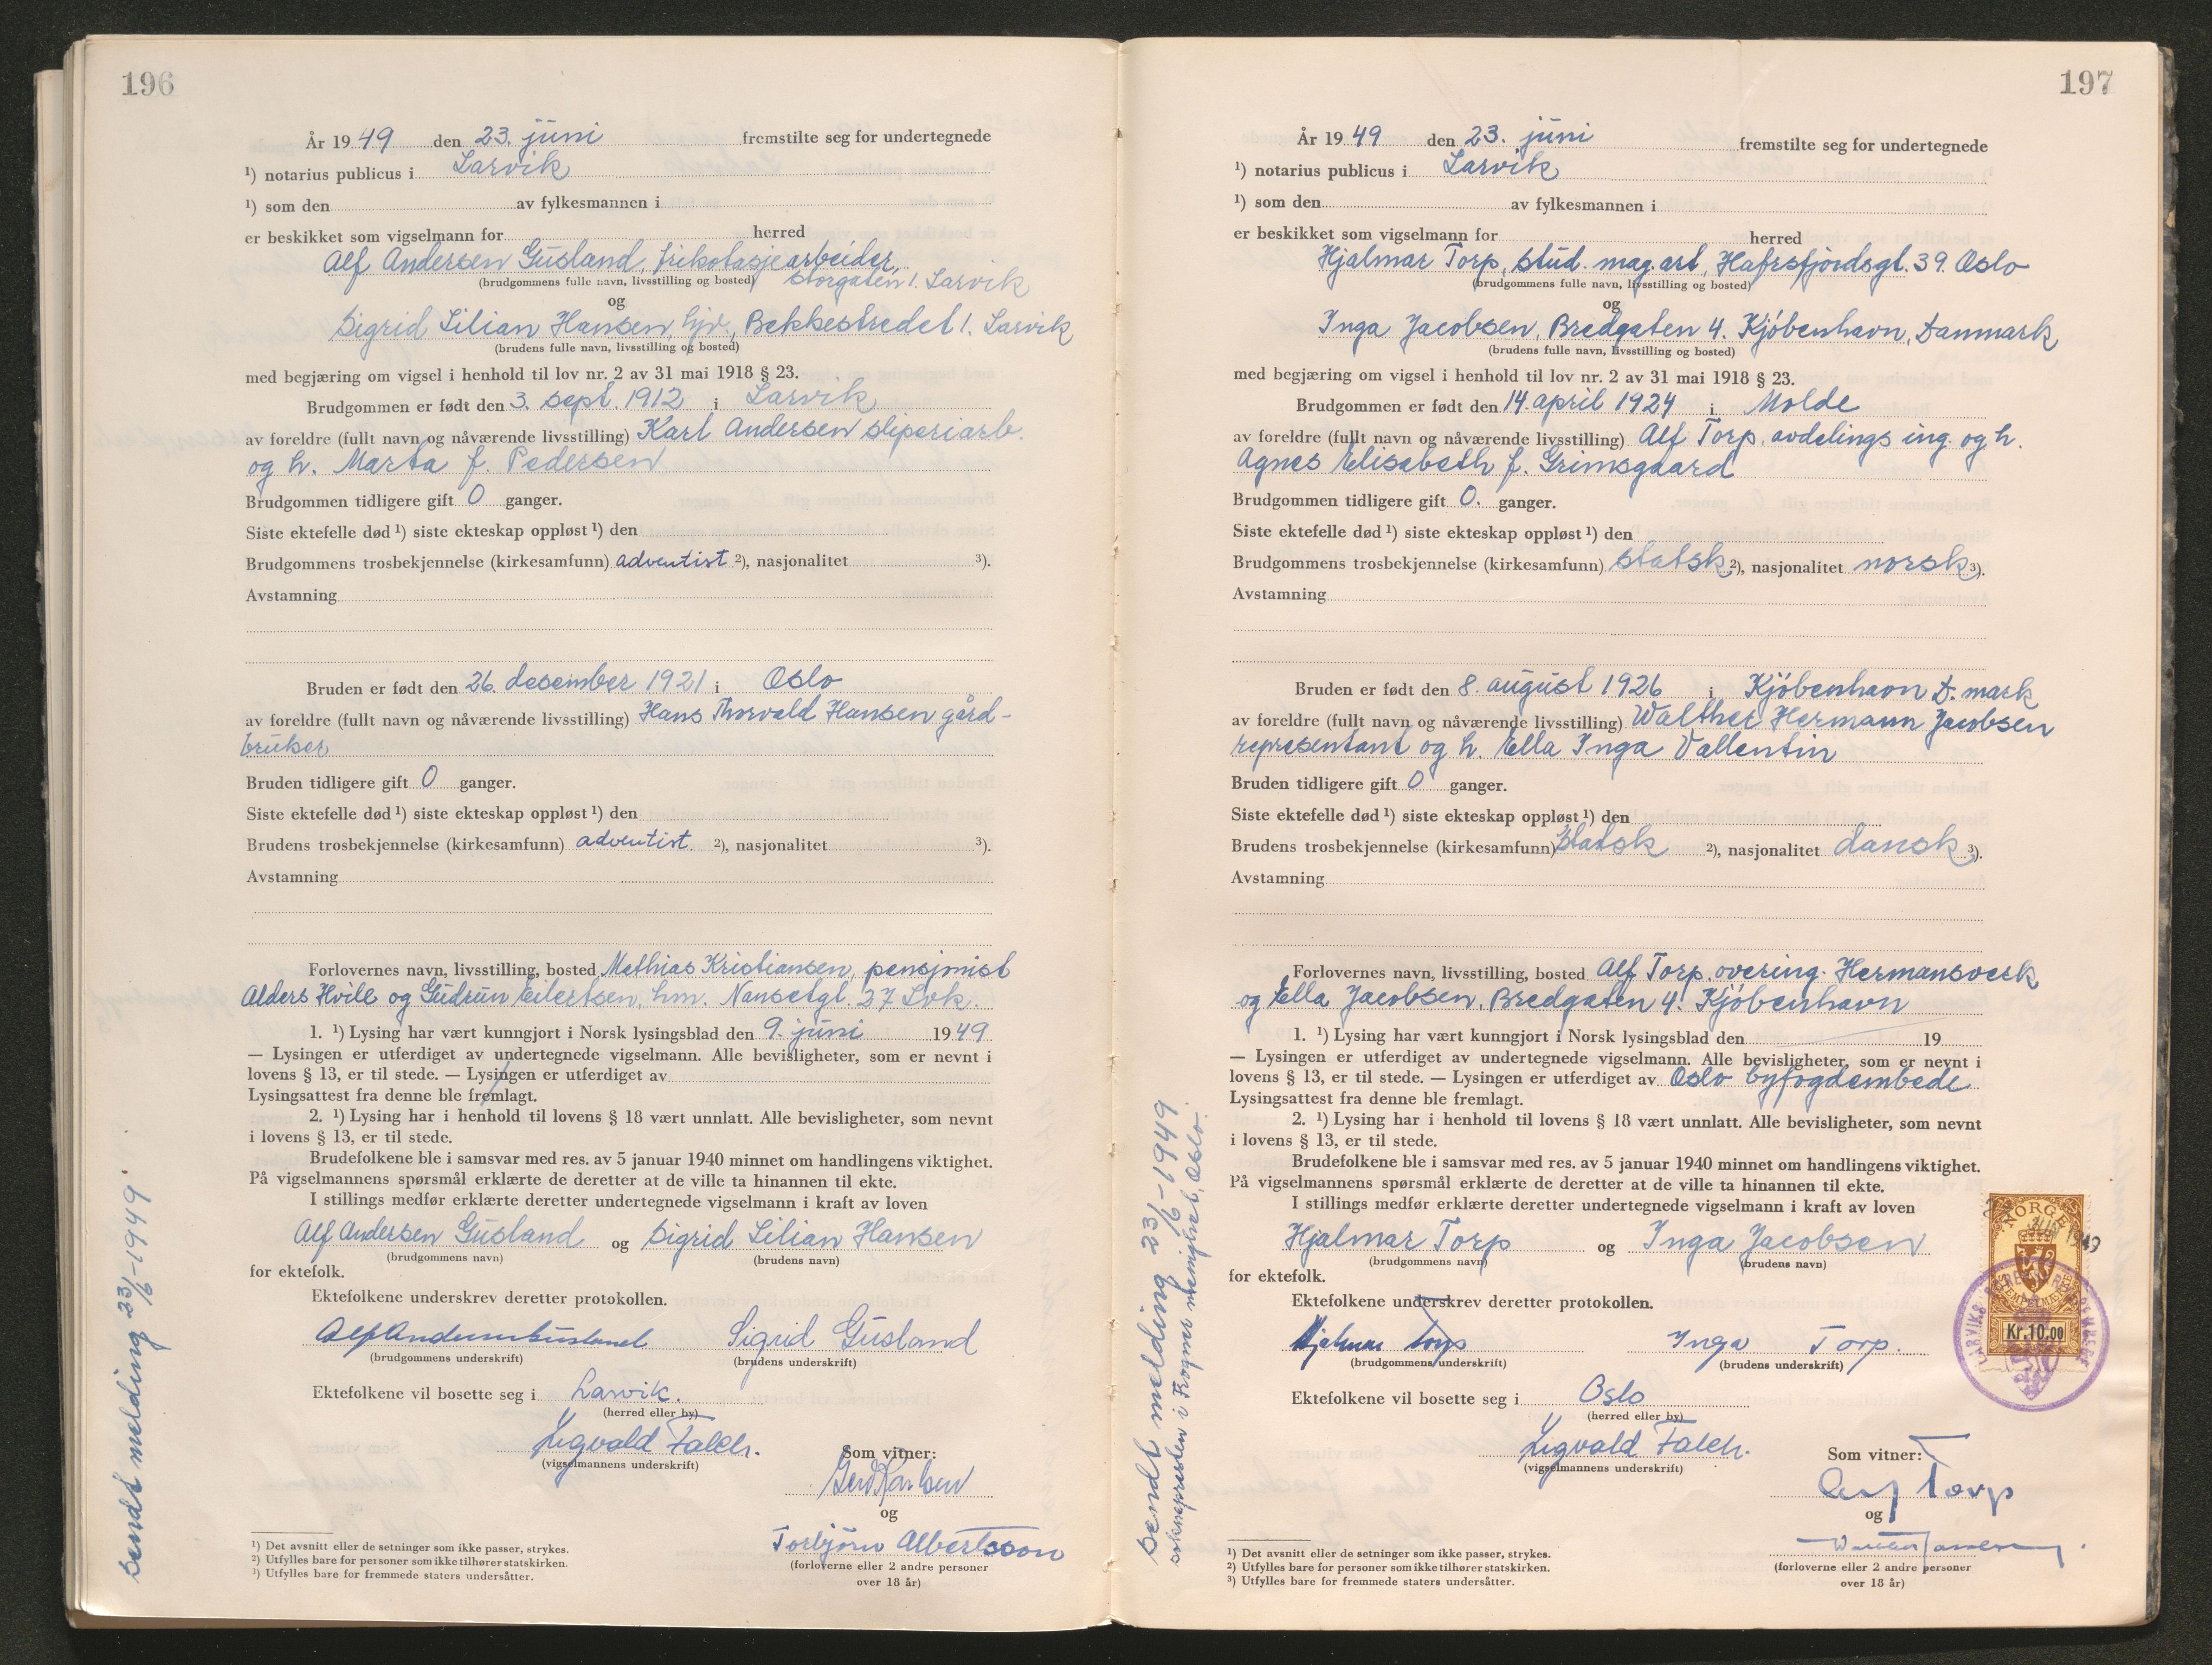 196
År 1949 den 23. juni fremstilte seg for undertegnede
¹) notarius publicus i Larvik
¹) som den av fylkesmannen i
er beskikket som vigselmann for herred
Alf Andersen Gusland, trikotasjearbeider,
(brudgommens fulle navn, livsstilling og bosted) Storgaten 1. Larvik
og
Sigrid Lilian Hansen, hjv., Bekkestredet 1. Larvik
(brudens fulle navn, livsstilling og bosted)
med begjæring om vigsel i henhold til lov nr. 2 av 31 mai 1918 § 23.
Brudgommen er født den 3. sept. 1912 i Larvik
av foreldre (fullt navn og nåværende livsstilling) Karl Andersen sliperiarb.
og h. Marta f. Pedersen
Brudgommen tidligere gift 0 ganger.
Siste ektefelle død ¹) siste ekteskap oppløst ¹) den
Brudgommens trosbekjennelse (kirkesamfunn) adventist ²), nasjonalitet ³).
Avstamning
Bruden er født den 26. desember 1921 i Oslo
av foreldre (fullt navn og nåværende livsstilling) Hans Thorvald Hansen gård-
bruker
Bruden tidligere gift 0 ganger.
Siste ektefelle død ¹) siste ekteskap oppløst ¹) den
Brudens trosbekjennelse (kirkesamfunn) adventist. ²), nasjonalitet ³).
Avstamning
Forlovernes navn, livsstilling, bosted Mathias Kristiansen, pensjonist
Alders Hvile og Gudrun Eilertsen, hm. Nansetgt. 27 Lvk.
1. ¹) Lysing har vært kunngjort i Norsk lysingsblad den 9. juni 1949
— Lysingen er utferdiget av undertegnede vigselmann. Alle bevisligheter, som er nevnt i
lovens § 13, er til stede. — Lysingen er utferdiget av
Lysingsattest fra denne ble fremlagt.
2. ¹) Lysing har i henhold til lovens § 18 vært unnlatt. Alle bevisligheter, som nevnt
i lovens § 13, er til stede.
Brudefolkene ble i samsvar med res. av 5 januar 1940 minnet om handlingens viktighet.
På vigselmannens spørsmål erklærte de deretter at de ville ta hinannen til ekte.
I stillings medfør erklærte deretter undertegnede vigselmann i kraft av loven
Alf Andersen Gusland og Sigrid Lilian Hansen
(brudgommens navn) (brudens navn)
for ektefolk.
Ektefolkene underskrev deretter protokollen.
Alf Andersen Gusland Sigrid Gusland
(brudgommens underskrift) (brudens underskrift)
Ektefolkene vil bosette seg i Larvik.
(herred eller by)
Sigvald Falch.
(vigselmannens underskrift)
Som vitner:
Gerd Karlsen
og
Torbjörn Albertsson
(forloverne eller 2 andre personer
over 18 år)
¹) Det avsnitt eller de setninger som ikke passer, strykes.
²) Utfylles bare for personer som ikke tilhører statskirken.
³) Utfylles bare for fremmede staters undersåtter.
sendt melding 23/6-1949.
197
År 1949 den 23. juni fremstilte seg for undertegnede
¹) notarius publicus i Larvik
¹) som den av fylkesmannen i
er beskikket som vigselmann for herred
Hjalmar Torp, stud. mag. art, Hafrsfjordsgt. 39. Oslo
(brudgommens fulle navn, livsstilling og bosted)
og
Inga Jacobsen, Bredgaten 4. Kjøbenhavn, Danmark
(brudens fulle navn, livsstilling og bosted)
med begjæring om vigsel i henhold til lov nr. 2 av 31 mai 1918 § 23.
Brudgommen er født den 14. april 1924 i Molde
av foreldre (fullt navn og nåværende livsstilling) Alf Torp, avdelings ing. og h.
Agnes Elisabeth f. Grimsgaard
Brudgommen tidligere gift 0. ganger.
Siste ektefelle død ¹) siste ekteskap oppløst ¹) den
Brudgommens trosbekjennelse (kirkesamfunn) statsk ²), nasjonalitet norsk ³).
Avstamning
Bruden er født den 8. august 1926 i Kjøbenhavn D.mark
av foreldre (fullt navn og nåværende livsstilling) Walther Hermann Jacobsen
representant og h. Ella Inga Vallentin
Bruden tidligere gift 0 ganger.
Siste ektefelle død ¹) siste ekteskap oppløst ¹) den
Brudens trosbekjennelse (kirkesamfunn) Statsk ²), nasjonalitet dansk ³).
Avstamning
Forlovernes navn, livsstilling, bosted Alf Torp, overing. Hermansverk
og Ella Jacobsen, Bredgaten 4. Kjøbenhavn
1. ¹) Lysing har vært kunngjort i Norsk lysingsblad den 19
— Lysingen er utferdiget av undertegnede vigselmann. Alle bevisligheter, som er nevnt i
lovens § 13, er til stede. — Lysingen er utferdiget av Oslo byfogdembede
Lysingsattest fra denne ble fremlagt.
2. ¹) Lysing har i henhold til lovens § 18 vært unnlatt. Alle bevisligheter, som nevnt
i lovens § 13, er til stede.
Brudefolkene ble i samsvar med res. av 5 januar 1940 minnet om handlingens viktighet.
På vigselmannens spørsmål erklærte de deretter at de ville ta hinannen til ekte.
I stillings medfør erklærte deretter undertegnede vigselmann i kraft av loven
Hjalmar Torp og Inga Jacobsen
(brudgommens navn) (brudens navn)
for ektefolk.
Ektefolkene underskrev deretter protokollen.
Hjalmar Torp Inga Torp.
(brudgommens underskrift) (brudens underskrift)
Ektefolkene vil bosette seg i Oslo
(herred eller by)
Sigvald Falch.
(vigselmannens underskrift)
Som vitner:
Alf Torp
og
(forloverne eller 2 andre personer
over 18 år)
¹) Det avsnitt eller de setninger som ikke passer, strykes.
²) Utfylles bare for personer som ikke tilhører statskirken.
³) Utfylles bare for fremmede staters undersåtter.
sendt melding 23/6-1949
soknepresten i Frogner menighet, Oslo.
NORGE
1949
STEMPELMERKE
Kr. 10.00